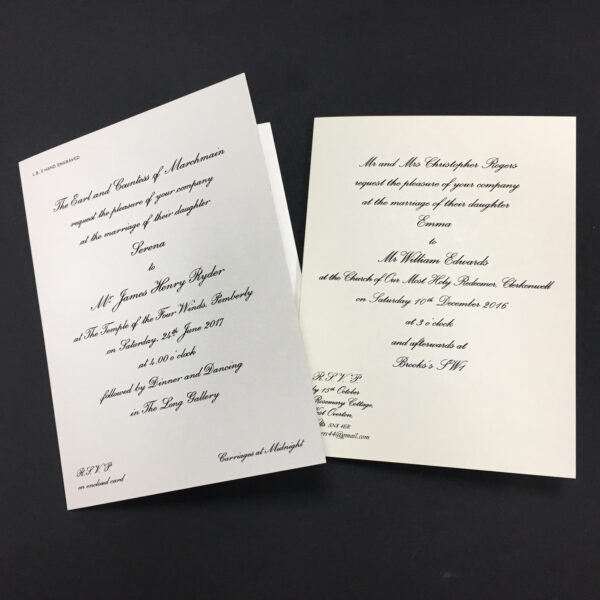 L.B. 2 HAND ENGRAVED
The Earl and Countess of Marchmain
request the pleasure of your company
at the marriage of their daughter
Serena
to
Mr. James Henry Ryder
at The Temple of the Four Winds, Pemberly
on Saturday, 24th June 2017
at 4.00 o'clock
followed by Dinner and Dancing
in The Long Gallery
Carriages at Midnight
R.S.V.P
on enclosed card
Mr and Mrs Christopher Rogers
request the pleasure of your company
at the marriage of their daughter
Emma
to
Mr William Edwards
at the Church of Our Most Holy Redeemer, Clerkenwell
on Saturday 10th December 2016
at 3 o'clock
and afterwards at
Brooks's SW1
R.S.V.P
by 15th October
Rosemary Cottage,
Overton,
4ER
44@gmail.com